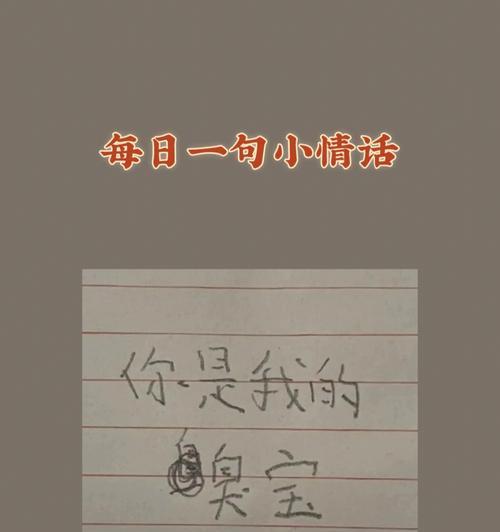 每日一句小情话
你是我的
臭宝